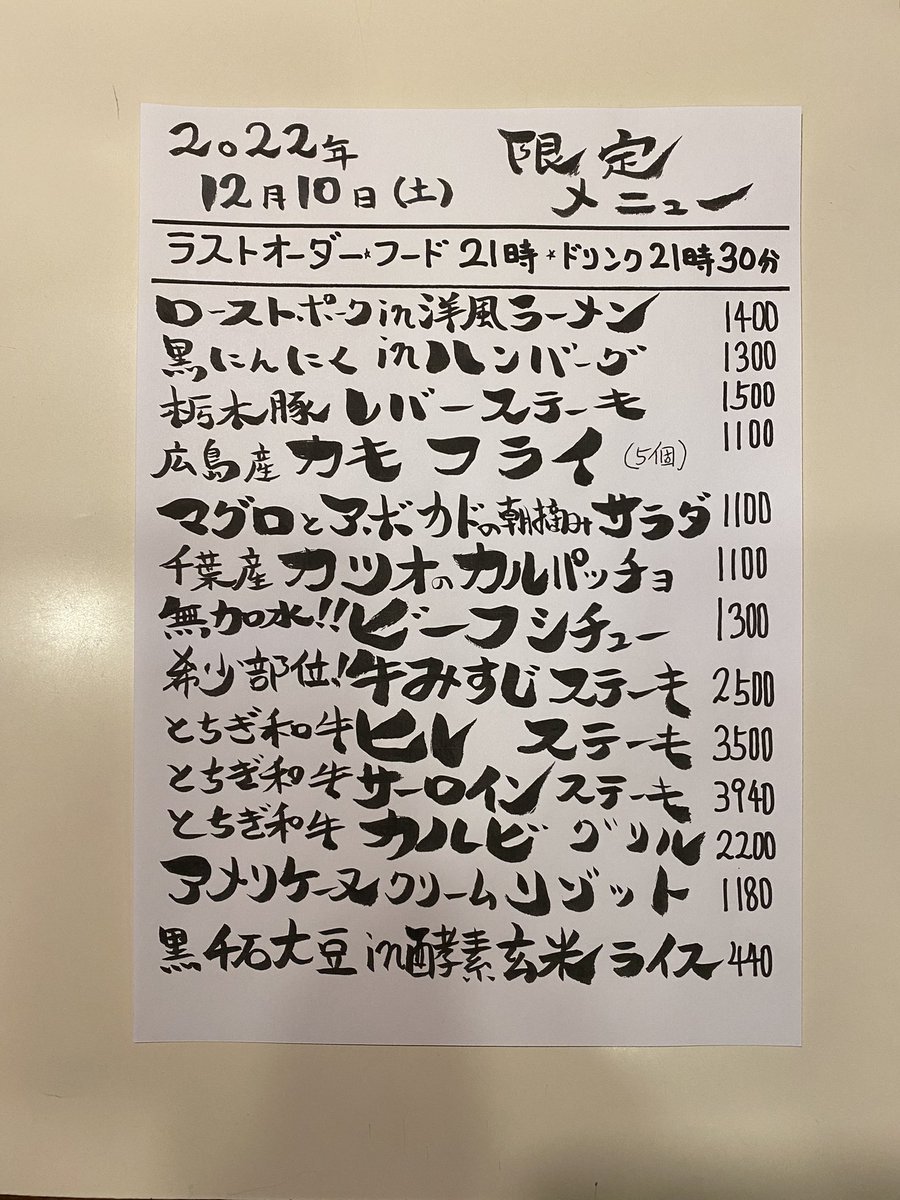 2022年 限定
12月10日(土) メニュー
ラストオーダー*フード 21時*ドリンク21時30分
ローストポークin洋風ラーメン 1400
黒にんにくinハンバーグ 1300
栃木豚 レバーステーキ 1500
広島産 カキフライ (5個) 1100
マグロとアボカドの朝摘みサラダ 1100
千葉産 カツオのカルパッチョ 1100
無加水!!ビーフシチュー 1300
希少部位!牛みすじステーキ 2500
とちぎ和牛ヒレ ステーキ 3500
とちぎ和牛サーロインステーキ 3940
とちぎ和牛 カルビグリル 2200
アメリケーヌクリームリゾット 1180
黒千石大豆in酵素玄米ライス 440